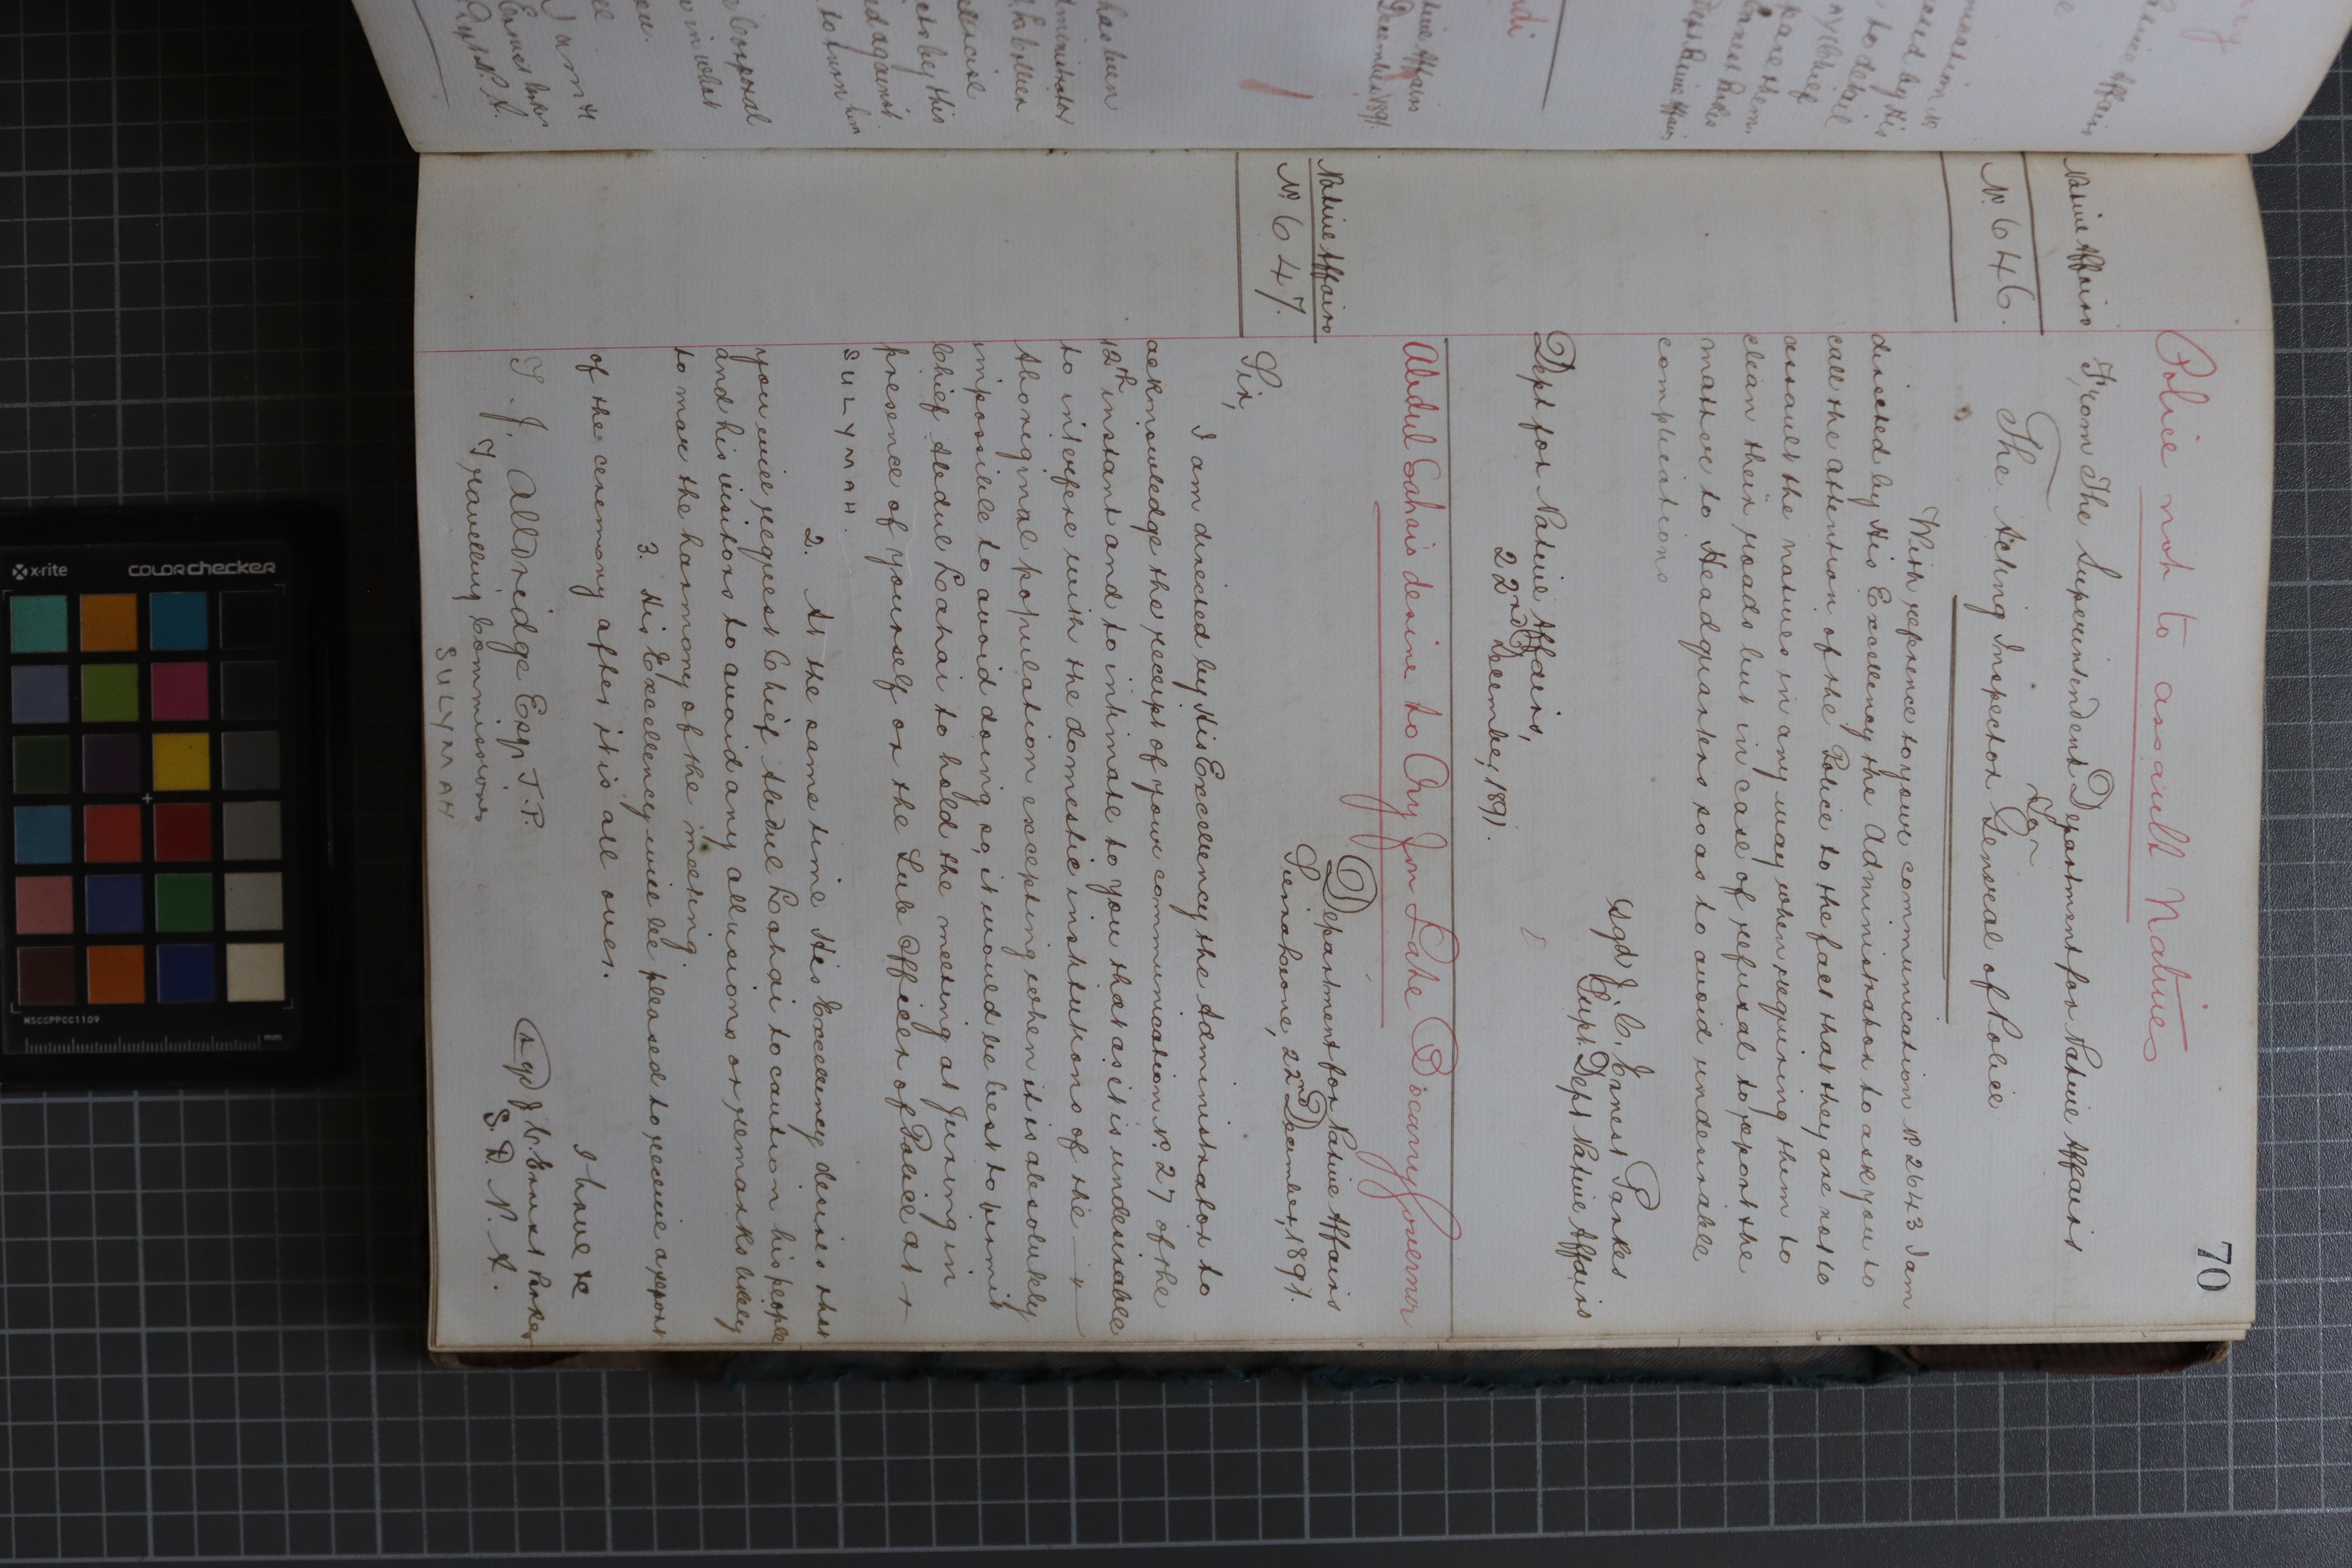 70
Police not to assault Natives
Native Affairs
No. 646.
From The Superintendent Department for Native Affairs
To
The Acting Inspector General of Police
With reference to your communication No. 2643 I am
directed by His Excellency the Administrator to ask you to
call the attention of the Police to the fact that they are not to
assault the natives in any way when requiring them to
clean their roads but in case of refusal to report the
matter to Headquarters so as to avoid undesirable
complications
Sgd J. C. Ernest Parkes
Supt. Dept Native Affairs
Dept for Native Affairs,
22nd December, 1891.
Abdul Lahais desire to Cry for Late Bocarry Governor
Native Affairs
No. 647.
Department for Native Affairs
Sierra Leone, 22nd December, 1891.
Sir,
I am directed by His Excellency the Administrator to
acknowledge the receipt of your communication No. 27 of the
12th instant and to intimate to you that as it is undesirable
to interfere with the domestic institutions of the
Aboriginal population excepting when it is absolutely
impossible to avoid doing so, it would be best to permit
Chief Abdul Lahai to hold the meeting at Juring in
presence of yourself or the Sub Officer of Police at
SULYMAH.
2. At the same time His Excellency desires that
you will request Chief Abdul Lahai to caution his people
and his visitors to avoid any allusions or remarks likely
to mar the harmony of the meeting.
3. His Excellency will be pleased to receive a report
of the ceremony after it is all over.
I have &c
(Sgd) J. C. Ernest Parkes
S. D. N. A.
T. J. Alldridge Esqr J.P.
Travelling Commissioner
SULYMAH
x-rite
COLORchecker
MSCCPPCC1109
mm